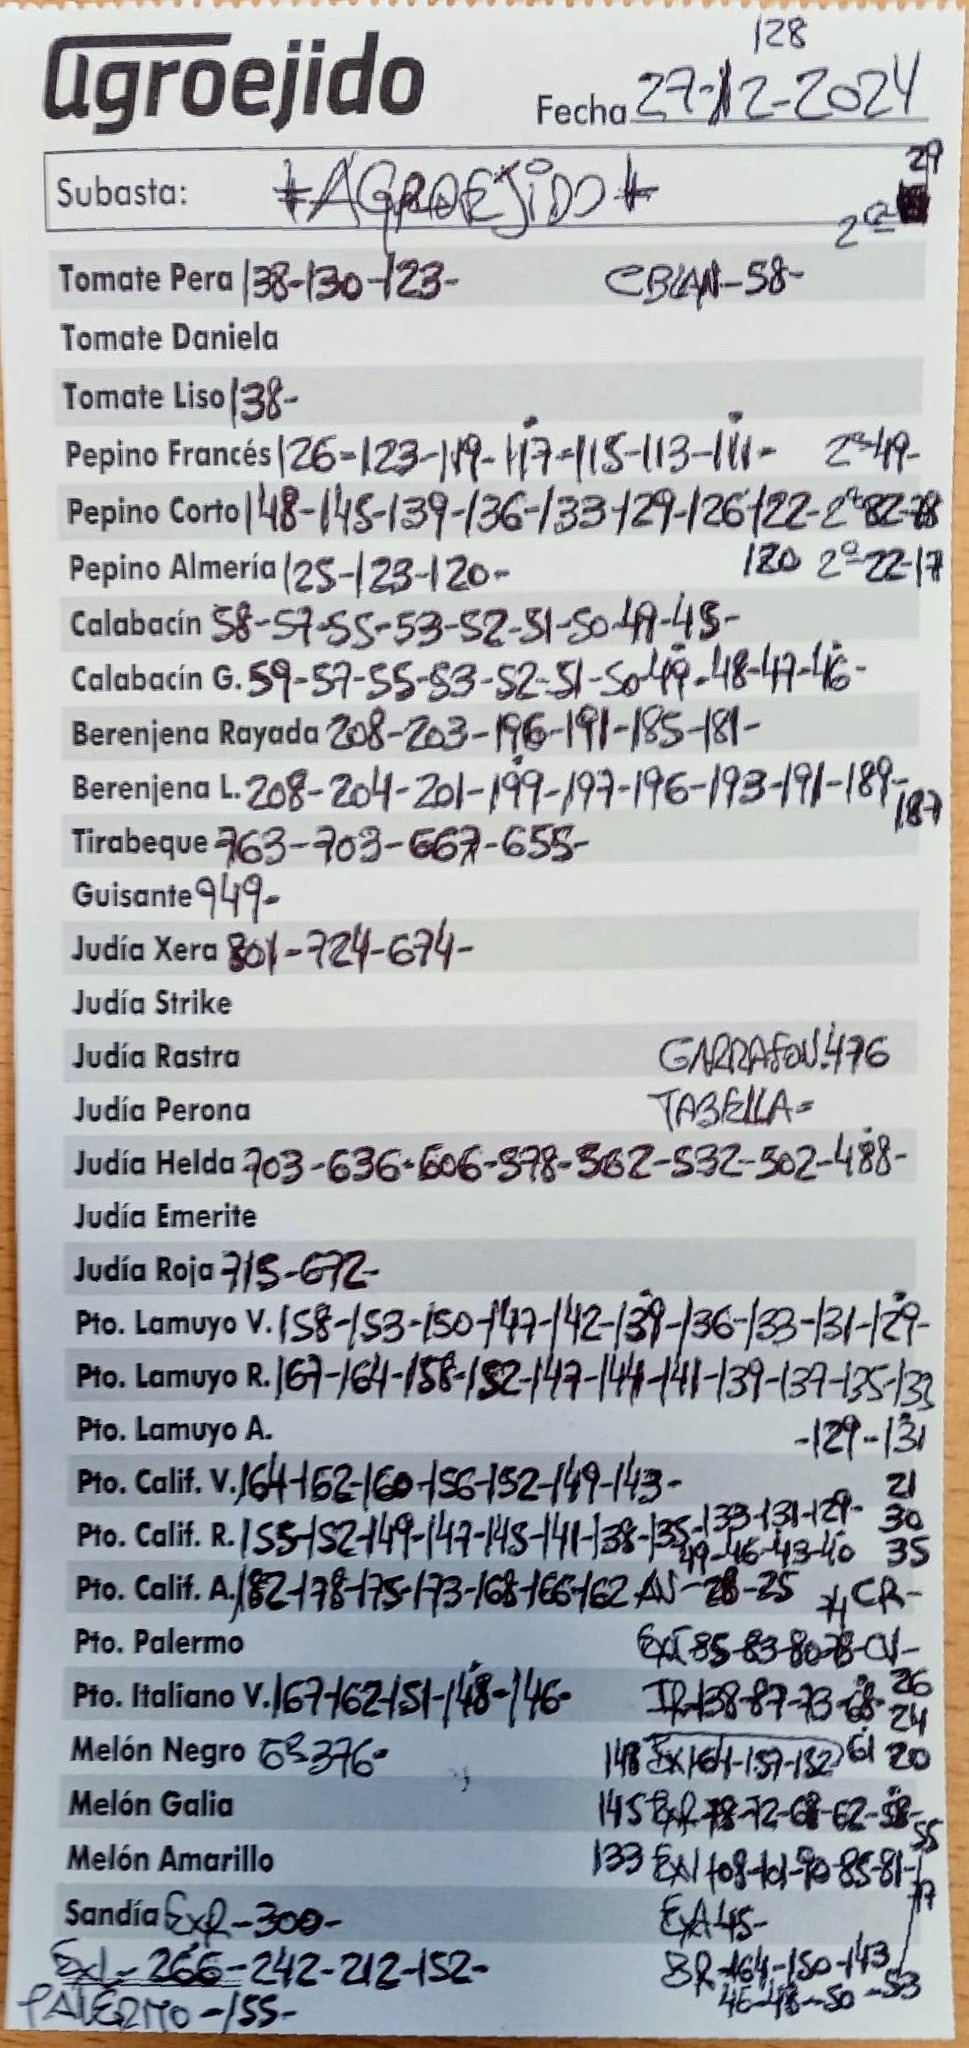 128
agroejido Fecha 27-12-2024
29
Subasta: AGROEJIDO 2ª
Tomate Pera 138-130-123- CBLAN-58-
Tomate Daniela
Tomate Liso 138-
Pepino Francés 126-123-119-117-115-113-111- 2ª49-
Pepino Corto 148-145-139-136-133-129-126-122-2ª82-78
Pepino Almería 125-123-120- 120 2ª22-17
Calabacín 58-57-55-53-52-51-50-49-45-
Calabacín G. 59-57-55-53-52-51-50-49-48-47-46-
Berenjena Rayada 208-203-196-191-185-181-
Berenjena L. 208-204-201-199-197-196-193-191-189-
187
Tirabeque 763-703-667-655-
Guisante 949-
Judía Xera 801-724-674-
Judía Strike
Judía Rastra GARRAFON.476
Judía Perona TABELLA=
Judía Helda 703-636-606-578-562-532-502-488-
Judía Emerite
Judía Roja 715-672-
Pto. Lamuyo V. 158-153-150-147-142-139-136-133-131-129-
Pto. Lamuyo R. 167-164-158-152-147-144-141-139-137-135-133
Pto. Lamuyo A. -129-131
Pto. Calif. V. 164-162-160-156-152-149-143- 21
Pto. Calif. R. 155-152-149-147-145-141-138-135-133-131-129- 30
49-46-43-40 35
Pto. Calif. A. 182-178-175-173-168-166-162 AN-28-25 74 CR-
Pto. Palermo 85-83-80-78-CV-
Pto. Italiano V. 167-162-151-148-146- IR-138-87-73-68- 26
24
Melón Negro 376- 148 EX164-157-152 61 20
Melón Galia 145 EXR 78-72-68-62-58-
55
Melón Amarillo 133 108-101-90-85-81-
77
Sandía EXR-300- EXA45-
266-242-212-152- BR-164-150-143
PALERMO-155- 46-48-50-53